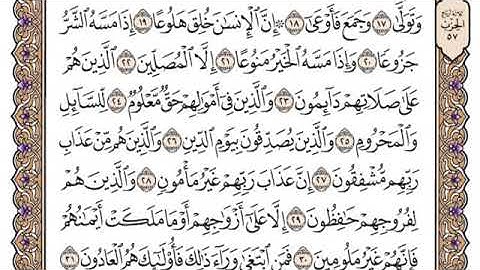 وَتَوَلَّىٰ ١٧ وَجَمَعَ فَأَوْعَىٰٓ ١٨ ۞ إِنَّ ٱلْإِنسَٰنَ خُلِقَ هَلُوعًا ١٩ إِذَا مَسَّهُ ٱلشَّرُّ
جَزُوعًا ٢٠ وَإِذَا مَسَّهُ ٱلْخَيْرُ مَنُوعًا ٢١ إِلَّا ٱلْمُصَلِّينَ ٢٢ ٱلَّذِينَ هُمْ
عَلَىٰ صَلَاتِهِمْ دَآئِمُونَ ٢٣ وَٱلَّذِينَ فِىٓ أَمْوَٰلِهِمْ حَقٌّ مَّعْلُومٌ ٢٤ لِّلسَّآئِلِ
وَٱلْمَحْرُومِ ٢٥ وَٱلَّذِينَ يُصَدِّقُونَ بِيَوْمِ ٱلدِّينِ ٢٦ وَٱلَّذِينَ هُم مِّنْ عَذَابِ
رَبِّهِم مُّشْفِقُونَ ٢٧ إِنَّ عَذَابَ رَبِّهِمْ غَيْرُ مَأْمُونٍ ٢٨ وَٱلَّذِينَ هُمْ
لِفُرُوجِهِمْ حَٰفِظُونَ ٢٩ إِلَّا عَلَىٰٓ أَزْوَٰجِهِمْ أَوْ مَا مَلَكَتْ أَيْمَٰنُهُمْ
فَإِنَّهُمْ غَيْرُ مَلُومِينَ ٣٠ فَمَنِ ٱبْتَغَىٰ وَرَآءَ ذَٰلِكَ فَأُو۟لَٰٓئِكَ هُمُ ٱلْعَادُونَ ٣١
الحزب
٥٧